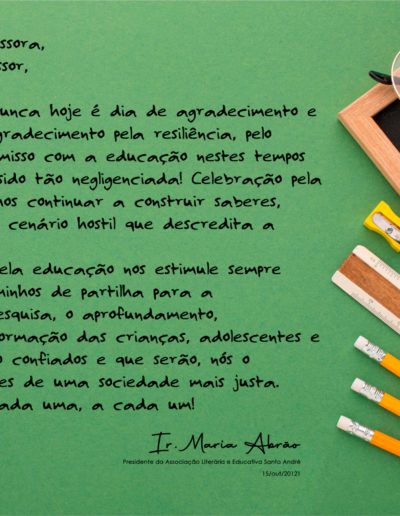 ssora,
ssor,
unca hoje é dia de agradecimento e
gradecimento pela resiliência, pelo
misso com a educação nestes tempos
sido tão negligenciada! Celebração pela
mos continuar a construir saberes,
cenário hostil que descredita a
ela educação nos estimule sempre
minhos de partilha para a
esquisa, o aprofundamento,
ormação das crianças, adolescentes e
o confiados e que serão, nós o
es de uma sociedade mais justa.
ada uma, a cada um!
Ir. Maria Abrão
Presidente da Associação Literária e Educativa Santo André
15/out/20121